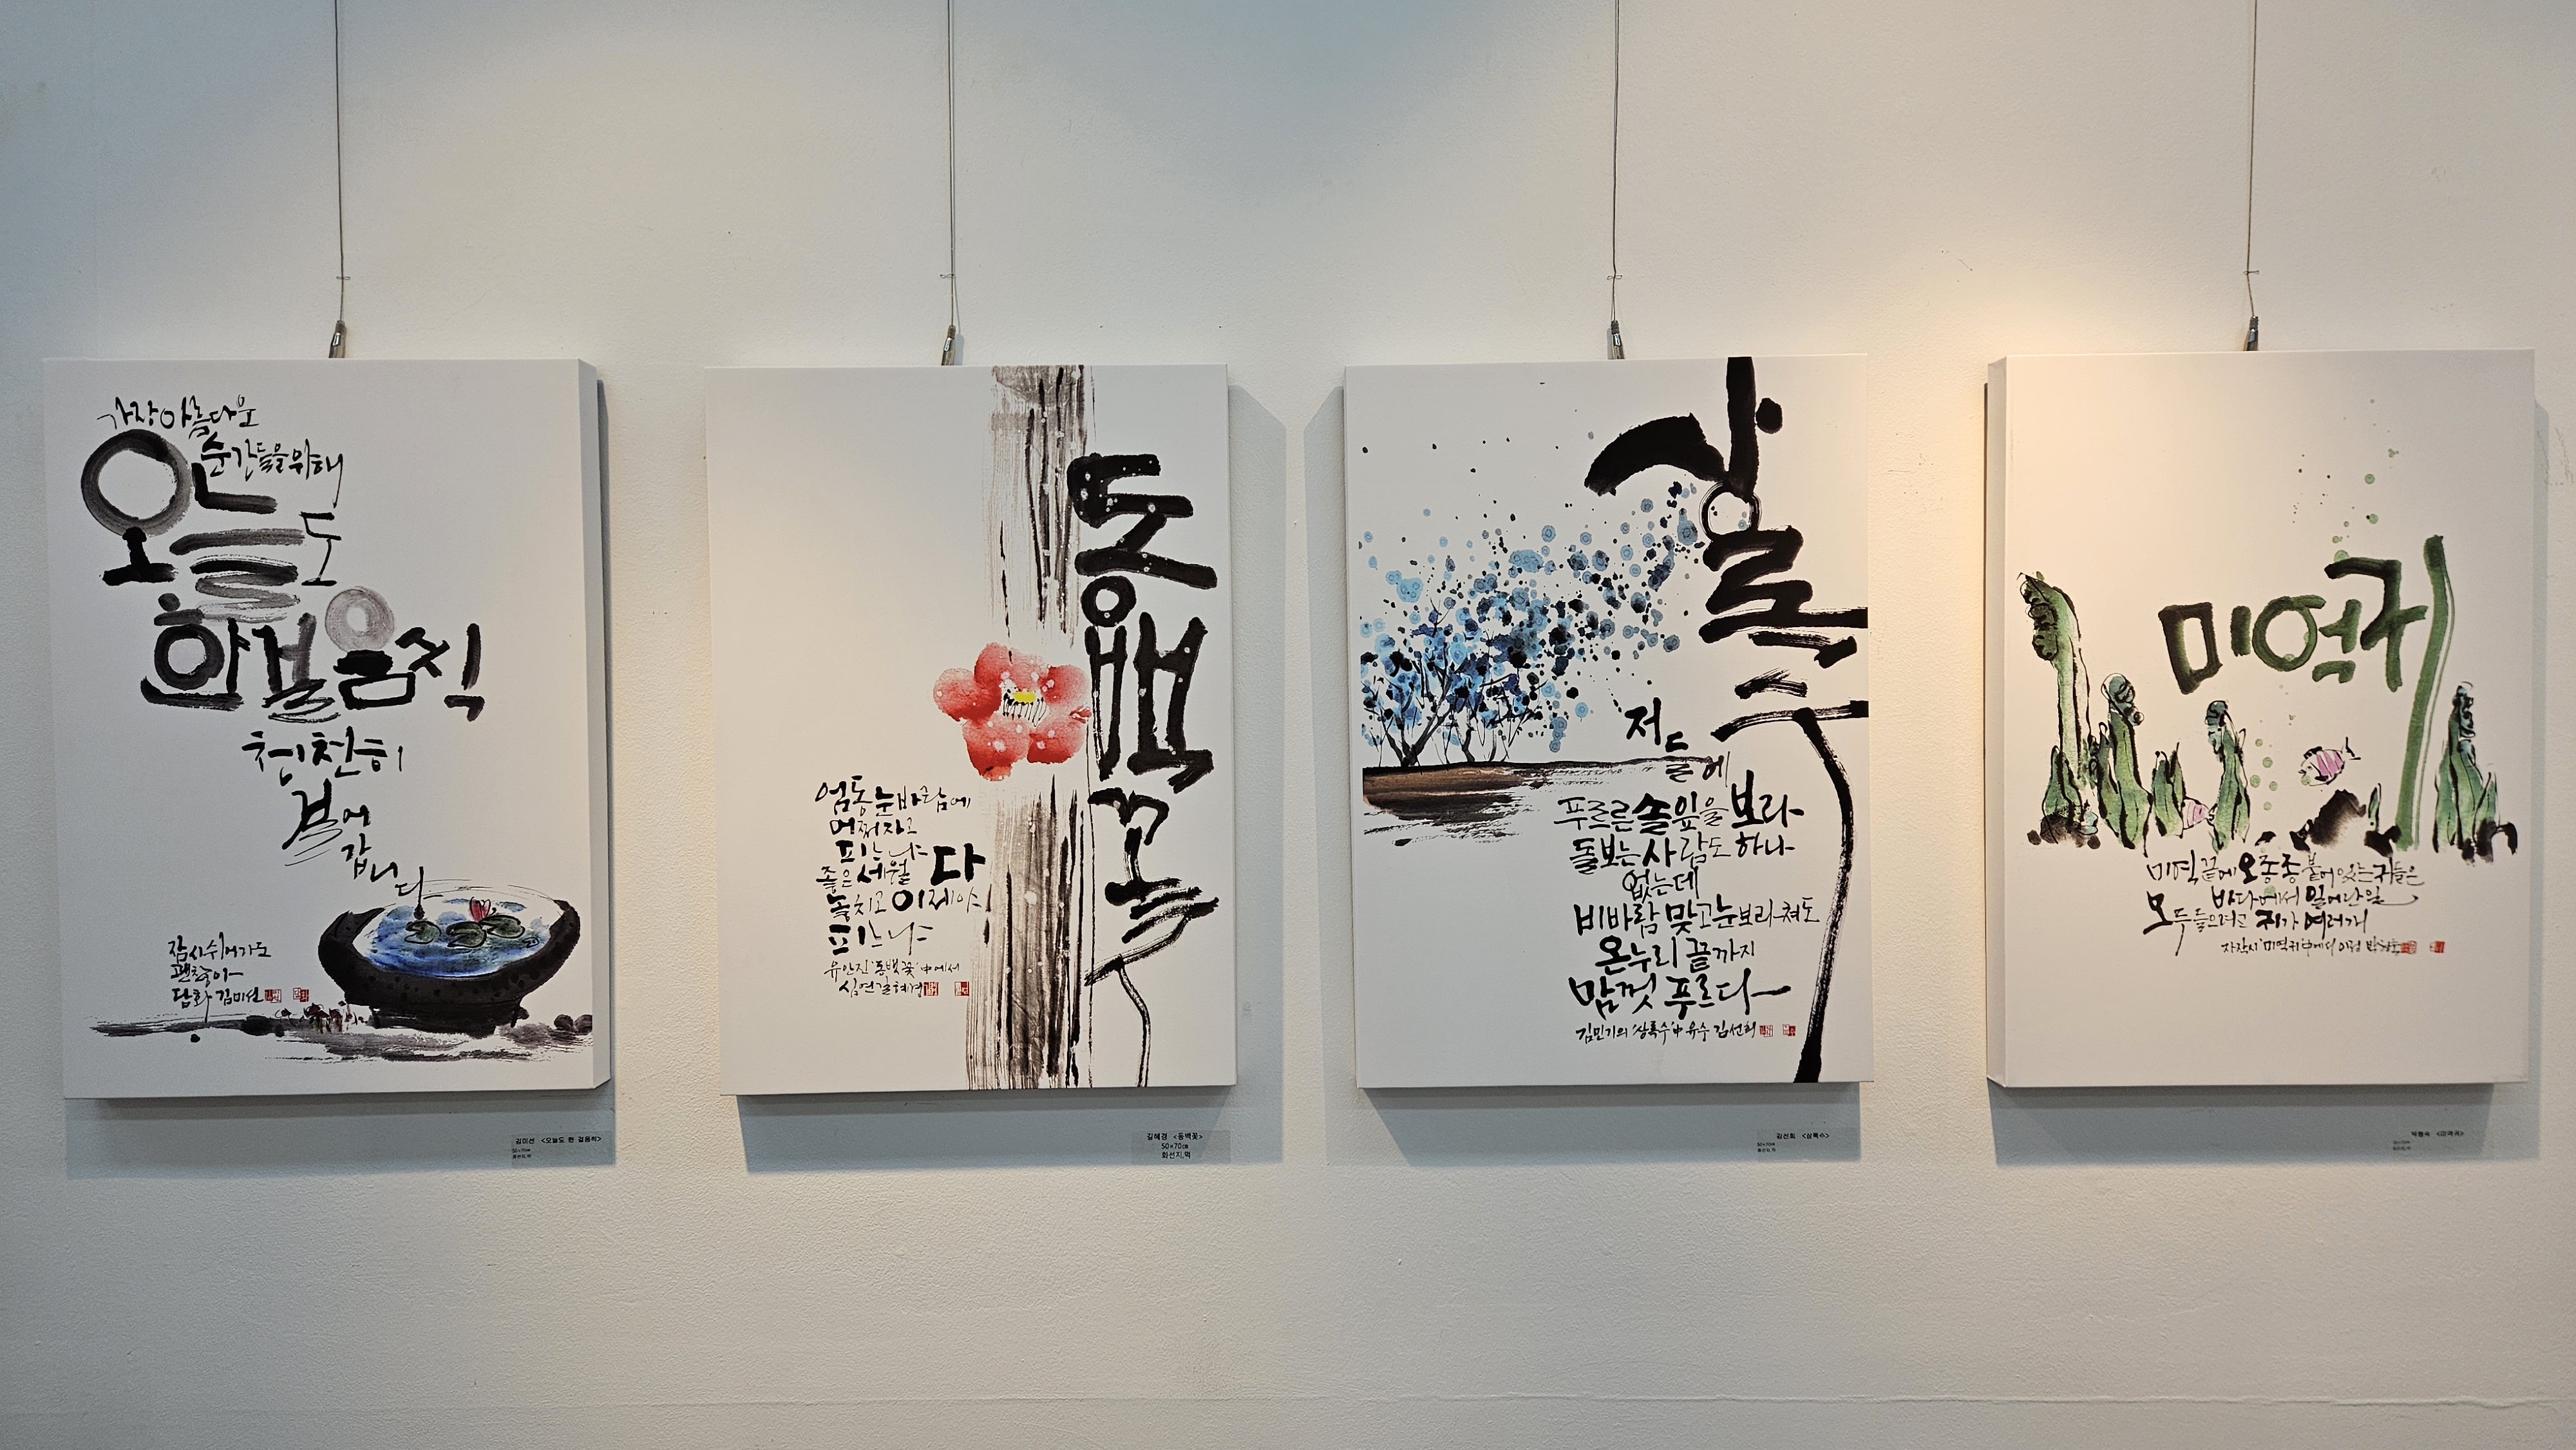 가장 아름다운
순간들을 위해
오늘도
한걸음씩
천천히
걸어
갑니
다
잠시 쉬어가도
괜찮아
담화 김미선
김미선 <오늘도 한 걸음씩>
50×70㎝
화선지,먹
동백꽃
엄동 눈바람에
어쩌자고
피느냐
좋은 세월 다
놓치고 이제야
피느냐
유안진 '동백꽃' 中에서
심연 김혜경
김혜경 <동백꽃>
50×70㎝
화선지,먹
상록수
저
들에
푸르른 솔잎을 보라
돌보는 사람도 하나
없는데
비바람 맞고 눈보라쳐도
온누리 끝까지
맘껏 푸르다
김민기의 '상록수' 中 유수 김선희
김선희 <상록수>
50×70㎝
화선지,먹
미역귀
미역 끝에 오종종 붙어있는 귀들은
바다에서 일어난 일
모두 들으려고 귀가 여러개
자작시 '미역귀' 中에서
<미역귀>